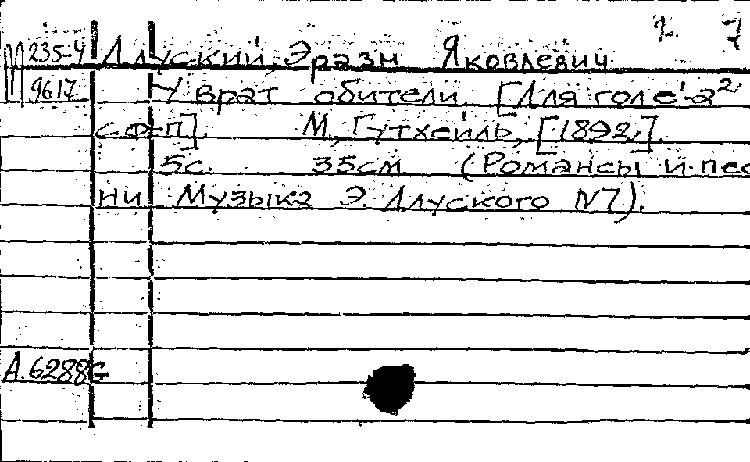 2. 7
М 235-4 Длуский, Эразм Яковлевич
9617 У врат обители. [Для голоса
с ф-п]. М., Гутхейль, [1892].
5с. 35см (Романсы и пес-
ни. Музыка Э. Длуского N7).
А.6288G